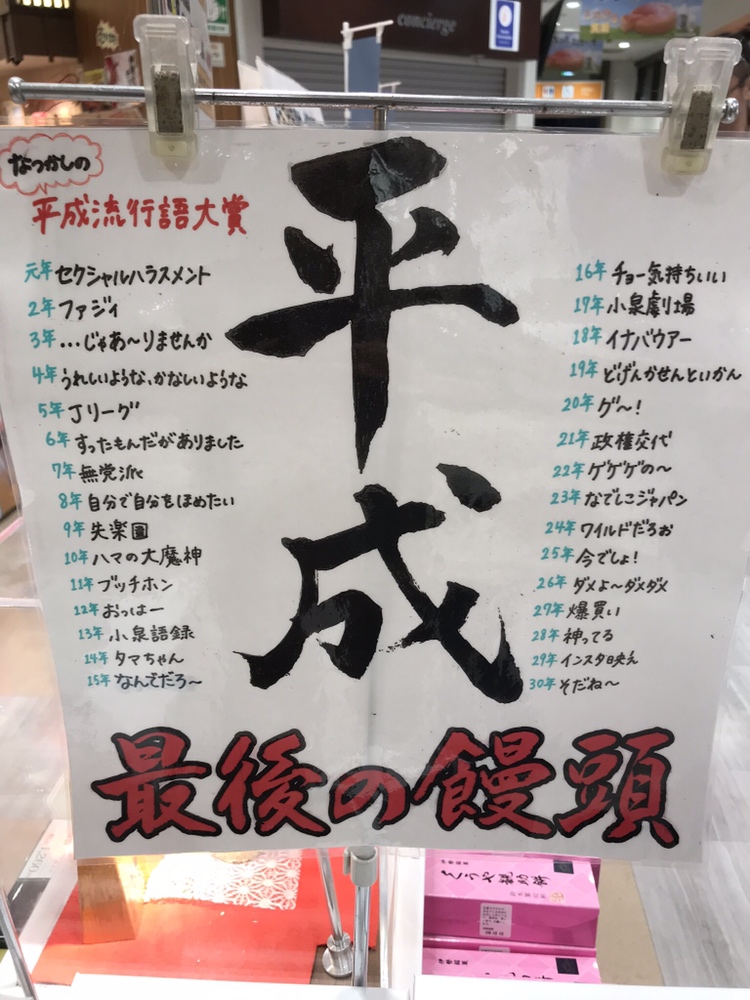 concierge
なつかしの
平成流行語大賞
平成
元年 セクシャルハラスメント
2年 ファジィ
3年 …じゃあ〜りませんか
4年 うれしいような、かなしいような
5年 Jリーグ
6年 すったもんだがありました
7年 無党派
8年 自分で自分をほめたい
9年 失楽園
10年 ハマの大魔神
11年 ブッチホン
12年 おっはー
13年 小泉語録
14年 タマちゃん
15年 なんでだろ〜
16年 チョー気持ちいい
19年 小泉劇場
18年 イナバウアー
19年 どげんかせんといかん
20年 グ〜!
21年 政権交代
22年 ゲゲゲの〜
23年 なでしこジャパン
24年 ワイルドだろぉ
25年 今でしょ!
26年 ダメよ〜ダメダメ
27年 爆買い
28年 神ってる
29年 インスタ映え
30年 そだね〜
最後の饅頭